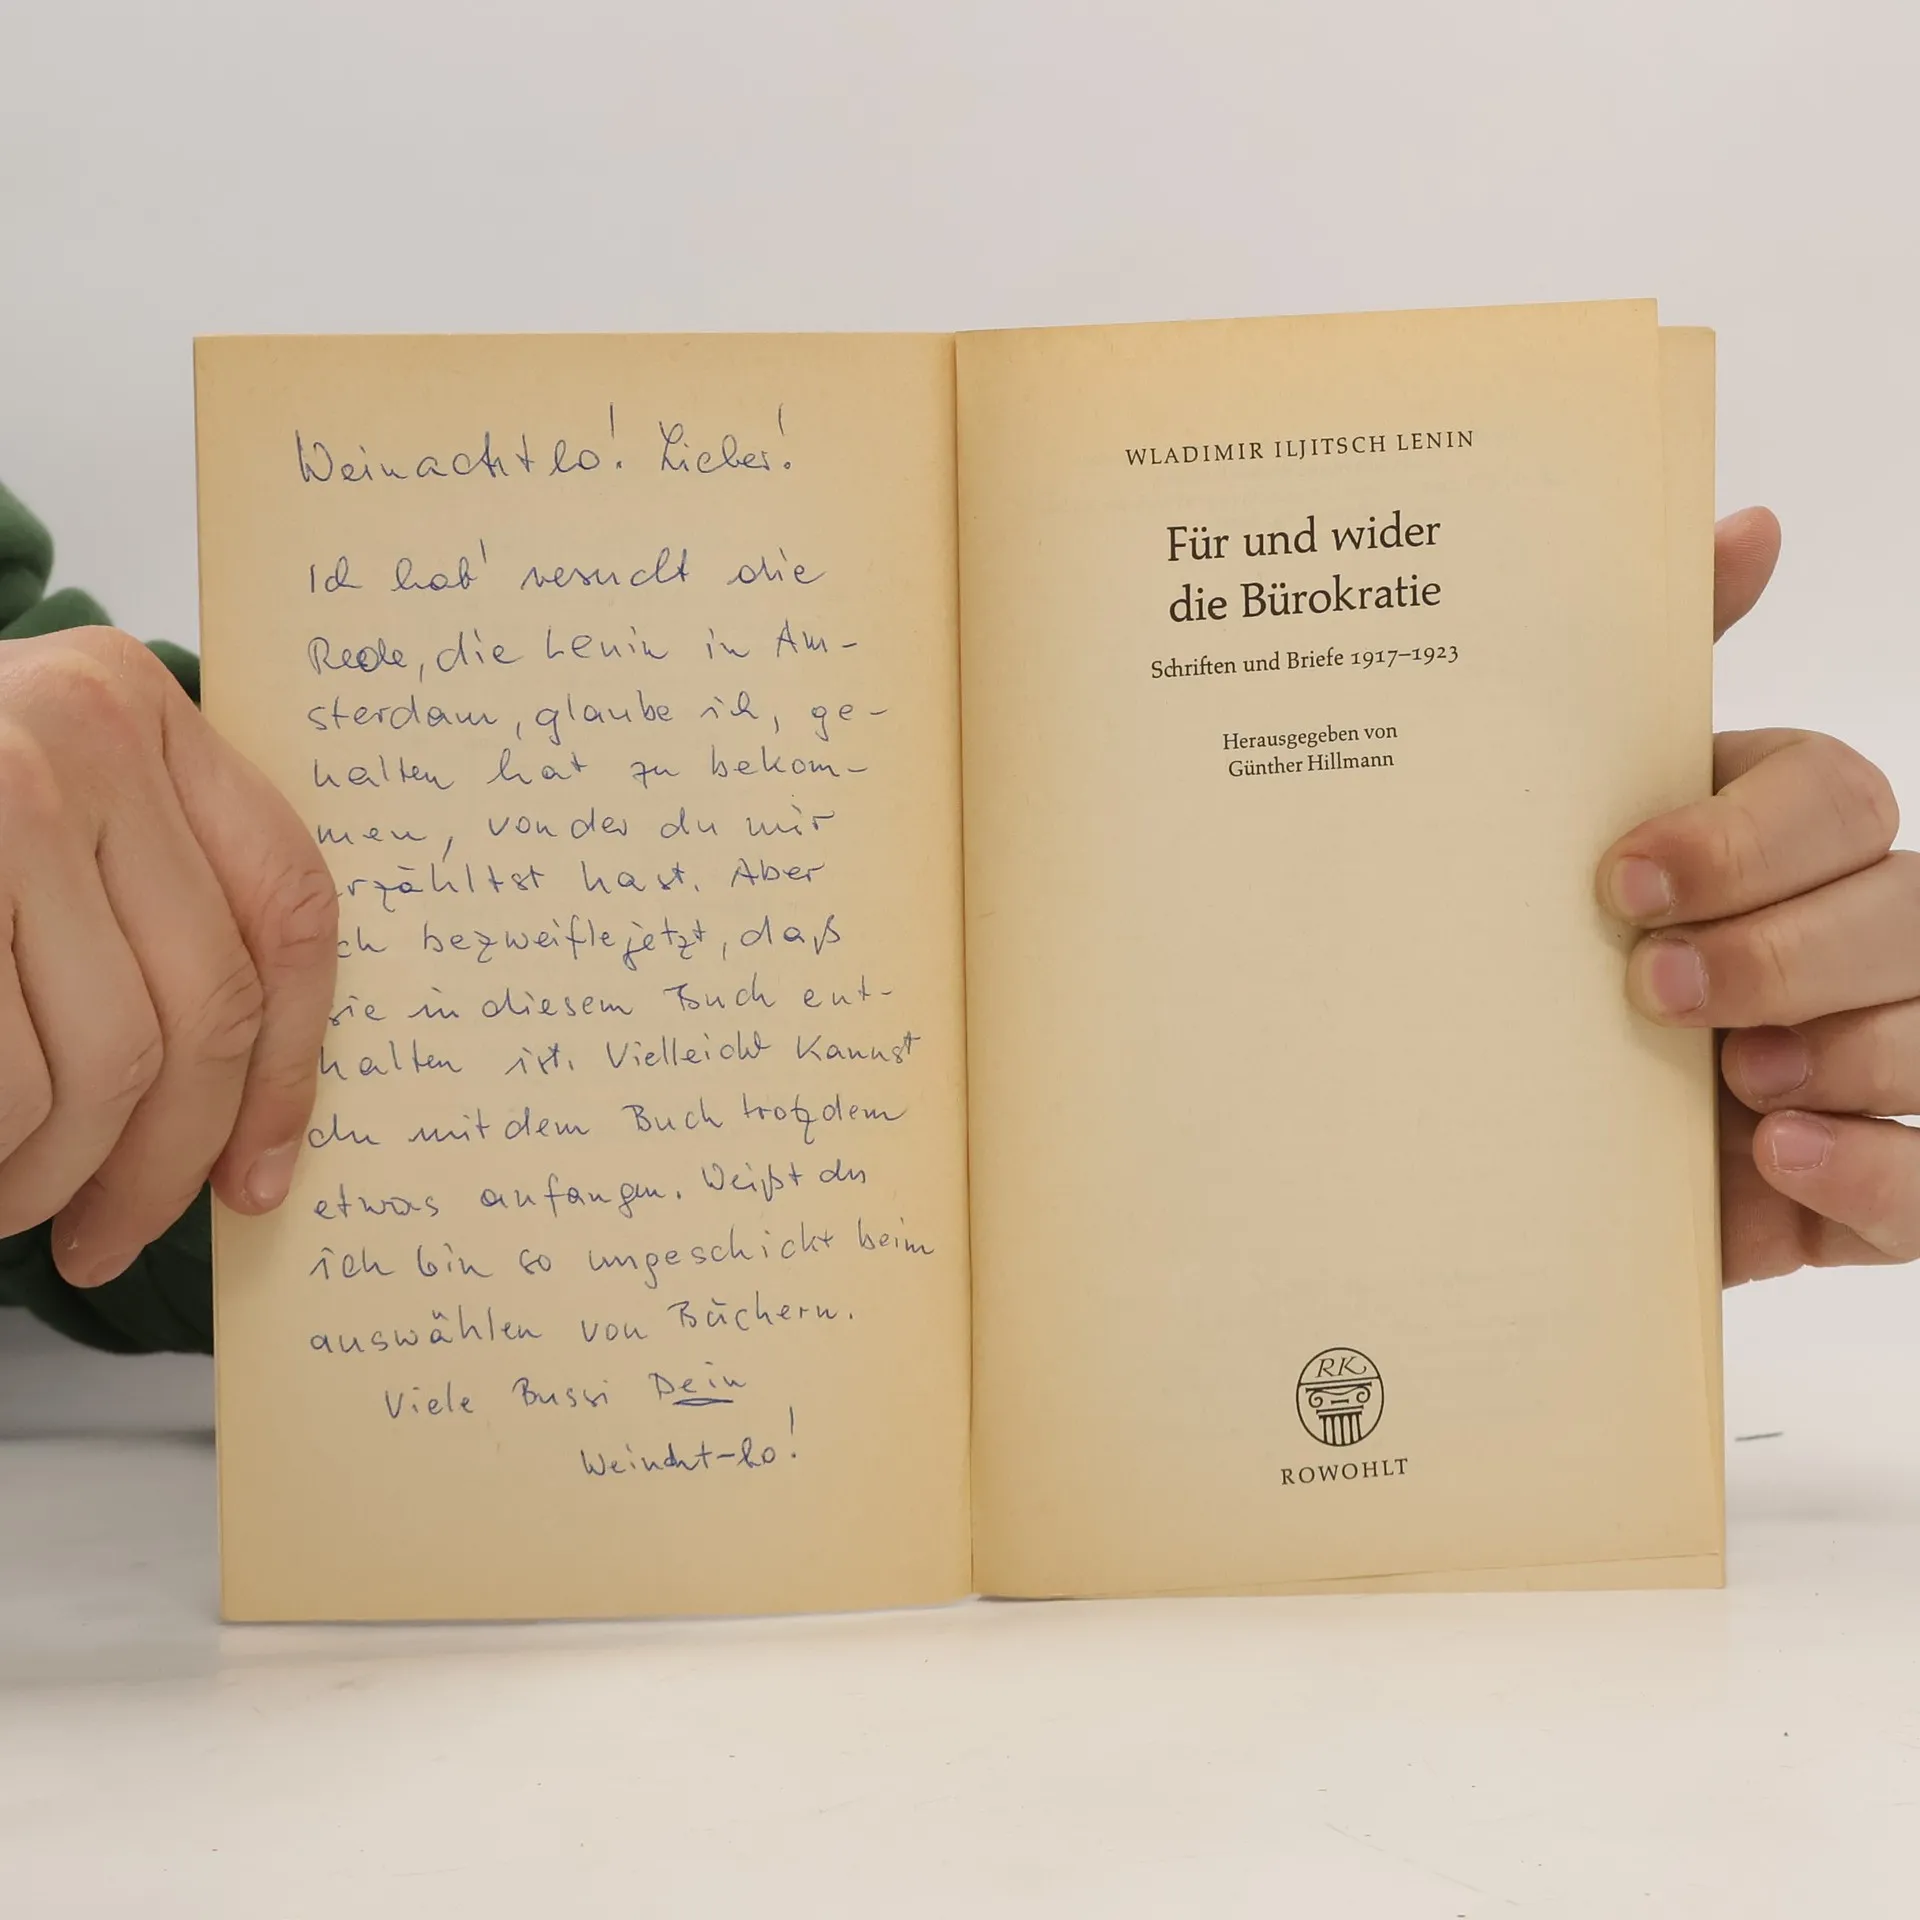 Weinachtlo! Lieber!
Ich hab' versucht die
Rede, die Lenin in Am-
sterdam, glaube ich, ge-
halten hat zu bekom-
men, von der du mir
rzähltst hast. Aber
ch bezweifle jetzt, daß
sie in diesem Buch ent-
halten ist. Vielleicht kannst
du mit dem Buch trotzdem
etwas anfangen. Weißt du
ich bin so ungeschickt beim
auswählen von Büchern.
Viele Bussi Dein
WLADIMIR ILJITSCH LENIN
Für und wider
die Bürokratie
Schriften und Briefe 1917–1923
Herausgegeben von
Günther Hillmann
RK
ROWOHLT